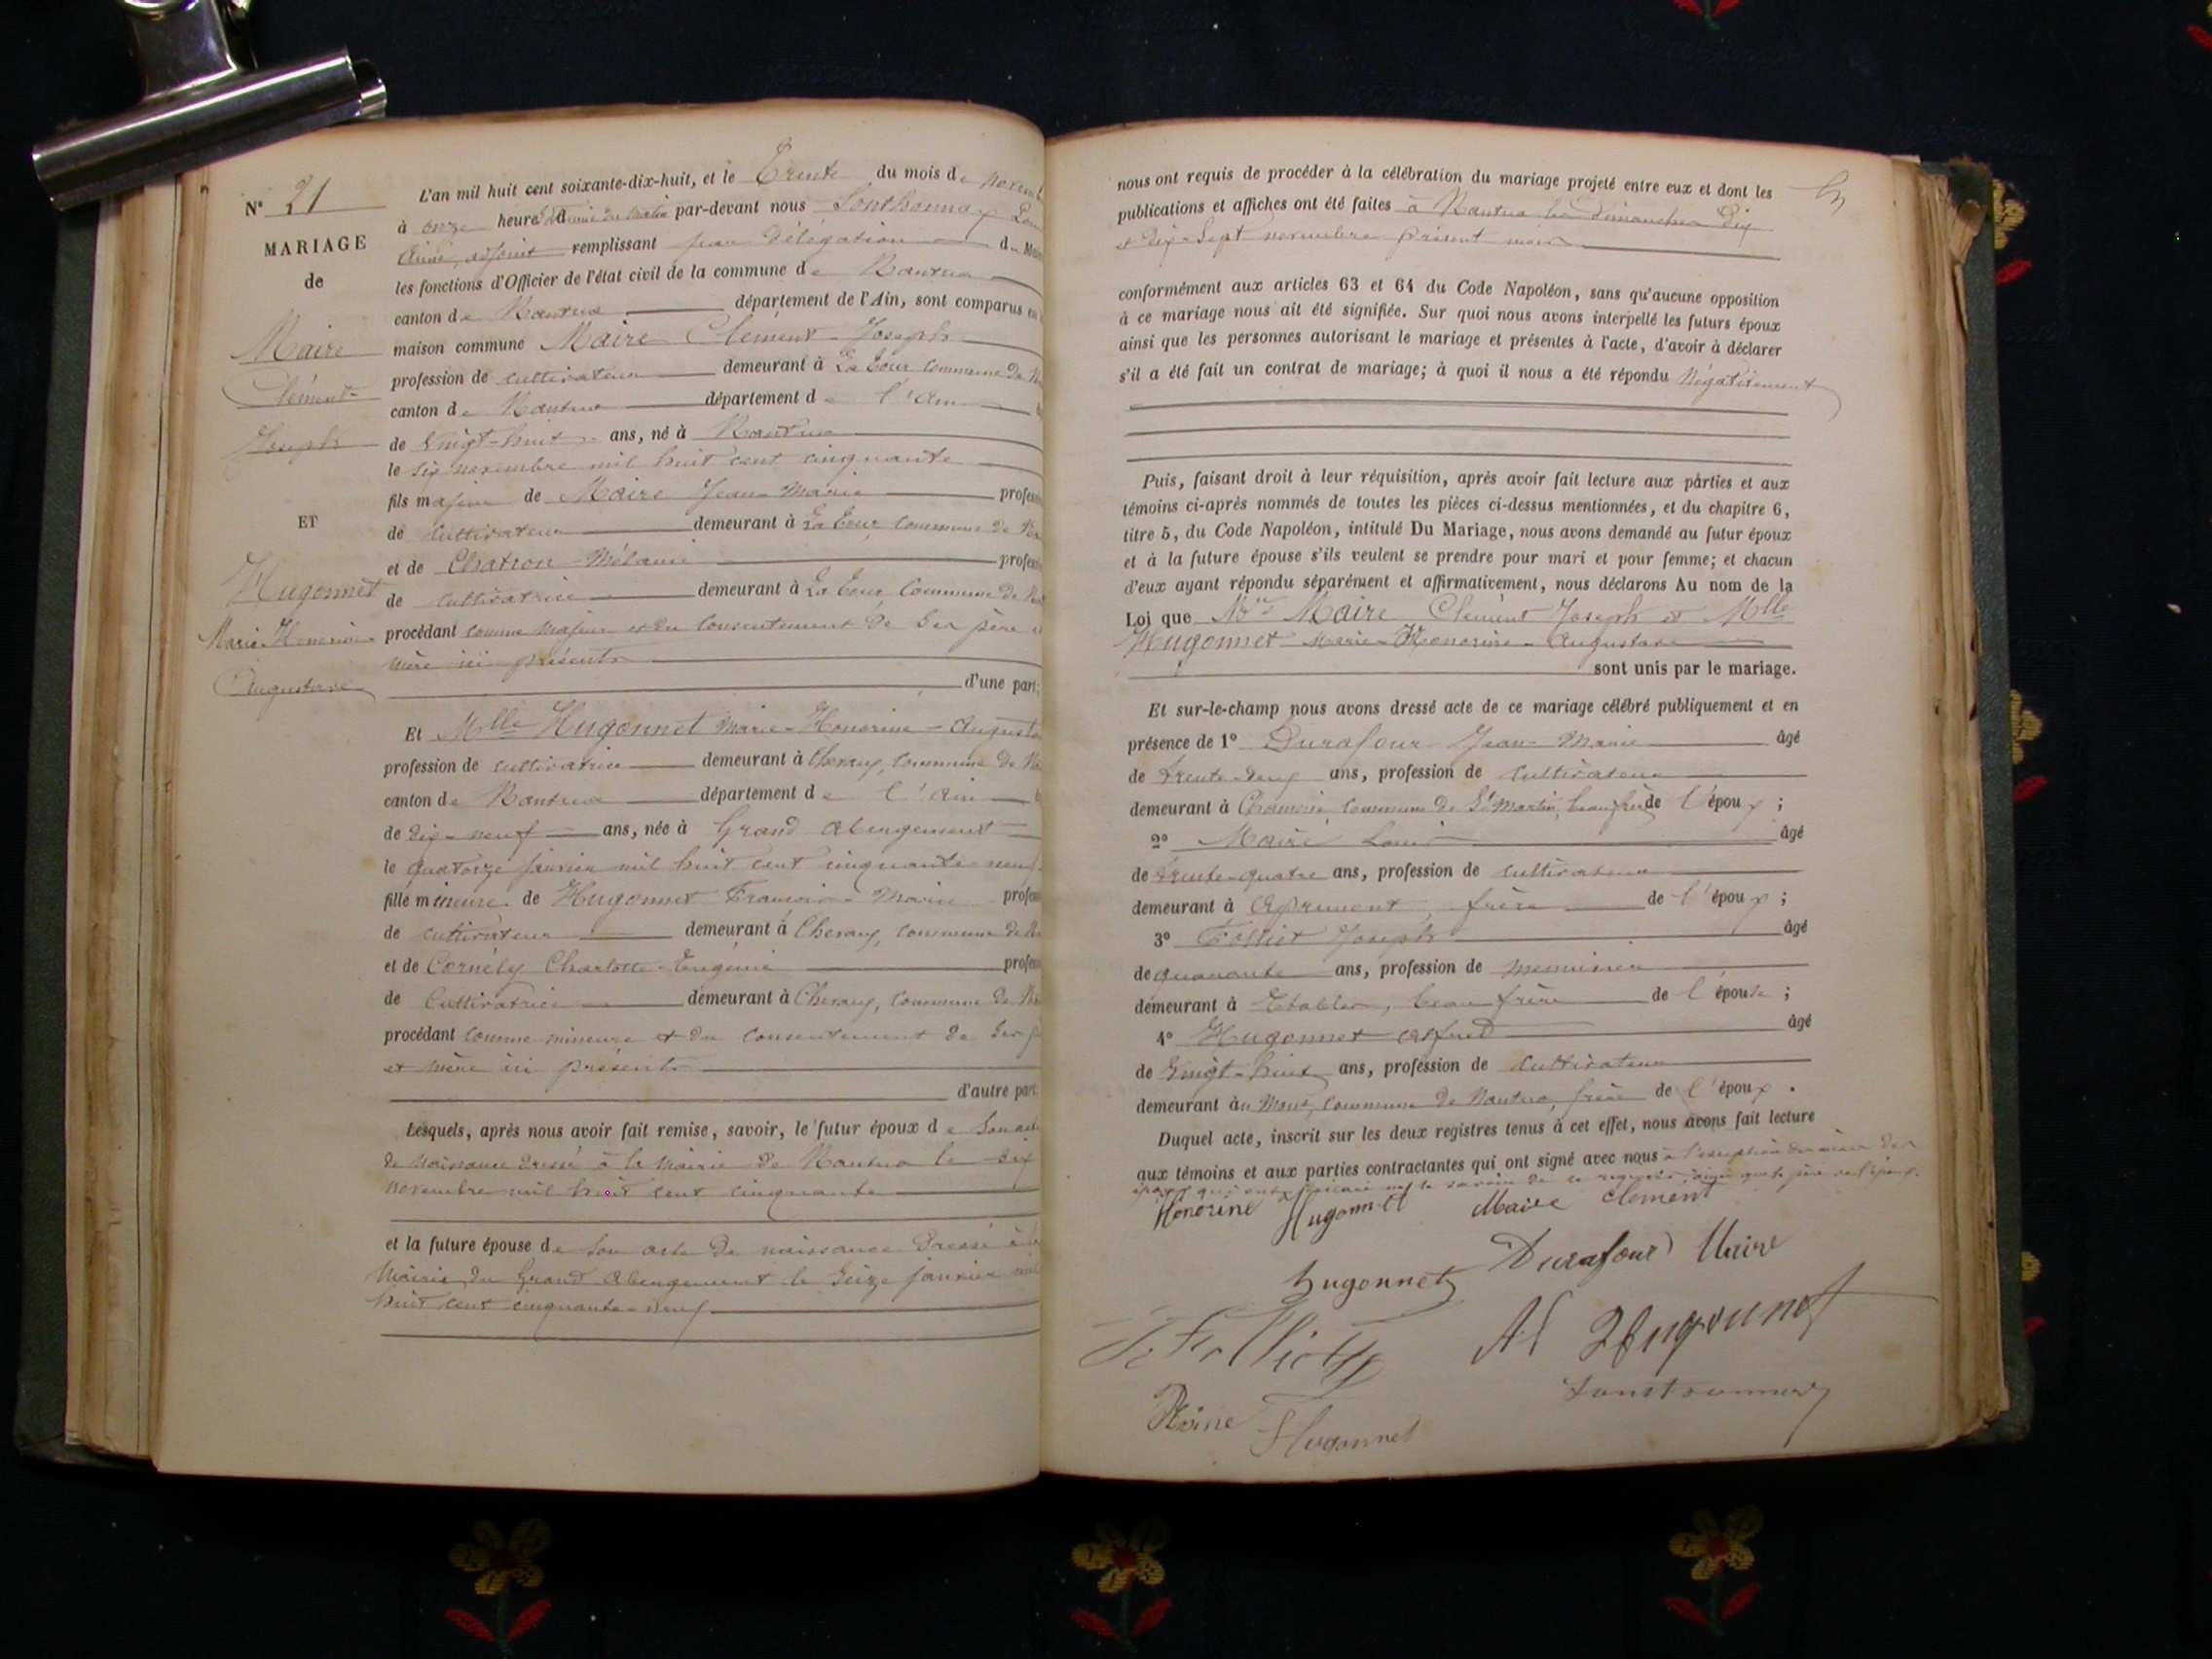 N° 21
MARIAGE
de
Maire
Clément
Joseph
ET
Hugonnet
Marie-Honorine
Augustave
L'an mil huit cent soixante-dix-huit, et le Trente du mois de
à onze heures par-devant nous Sonthonnax
Aimé, adjoint remplissant par délégation du
les fonctions d'Officier de l'état civil de la commune de Nantua
canton de Nantua département de l'Ain, sont comparus en
maison commune Maire Clément Joseph
profession de cultivateur demeurant à La Tour commune de
canton de Nantua département de l'Ain
de vingt-huit ans, né à Nantua
le six novembre mil huit cent cinquante
fils majeur de Maire Jean-Marie
de cultivateur demeurant à La Tour, commune de
et de Chatron Mélanie
de cultivatrice demeurant à La Tour, commune de
procédant comme majeur et du consentement de ses père et
mère ici présents
d'une part;
Et Mlle Hugonnet Marie-Honorine-
profession de cultivatrice demeurant à commune de
canton de Nantua département de l'Ain
de dix-neuf ans, née à Grand Abergement
le quatorze janvier mil huit cent cinquante-neuf
fille mineure de Hugonnet François-Marie
de cultivateur demeurant à commune de
et de Cornély Charlotte-Eugénie
de cultivatrice demeurant à commune de
procédant comme mineure et du consentement de ses
et mère ici présents
d'autre part.
Lesquels, après nous avoir fait remise, savoir, le futur époux de son acte
de naissance dressé à la mairie de Nantua le six
novembre mil huit cent cinquante
et la future épouse de son acte de naissance dressé à la
mairie du Grand Abergement le seize janvier mil
huit cent cinquante-neuf
nous ont requis de procéder à la célébration du mariage projeté entre eux et dont les
publications et affiches ont été faites à Nantua les dimanches dix
et dix-sept novembre présent mois
conformément aux articles 63 et 64 du Code Napoléon, sans qu'aucune opposition
à ce mariage nous ait été signifiée. Sur quoi nous avons interpellé les futurs époux
ainsi que les personnes autorisant le mariage et présentes à l'acte, d'avoir à déclarer
s'il a été fait un contrat de mariage; à quoi il nous a été répondu négativement
Puis, faisant droit à leur réquisition, après avoir fait lecture aux parties et aux
témoins ci-après nommés de toutes les pièces ci-dessus mentionnées, et du chapitre 6,
titre 5, du Code Napoléon, intitulé Du Mariage, nous avons demandé au futur époux
et à la future épouse s'ils veulent se prendre pour mari et pour femme; et chacun
d'eux ayant répondu séparément et affirmativement, nous déclarons Au nom de la
Loi que Maire Clément Joseph et Mlle
Hugonnet Marie-Honorine-Augustave
sont unis par le mariage.
Et sur-le-champ nous avons dressé acte de ce mariage célébré publiquement et en
présence de 1° Durafour Jean-Marie âgé
de ans, profession de cultivateur
demeurant à commune de St Martin, beau-frère de l'époux;
2° Maire Louis âgé
de trente-quatre ans, profession de cultivateur
demeurant à Apremont, frère de l'époux;
3° Folliet Joseph âgé
de quarante ans, profession de menuisier
demeurant à Etables, beau frère de l'épouse;
4° Hugonnet Alfred âgé
de vingt-huit ans, profession de cultivateur
demeurant au Mont, commune de Nantua, frère de l'époux.
Duquel acte, inscrit sur les deux registres tenus à cet effet, nous avons fait lecture
aux témoins et aux parties contractantes qui ont signé avec nous à l'exception des mères des
époux qui ont ne le savoir de ce requises, ainsi que le père de l'époux.
Honorine Hugonnet Maire Clement
Durafour Maire
Hugonnet
Al Hugonnet
Sonthonnax
Hugonnet